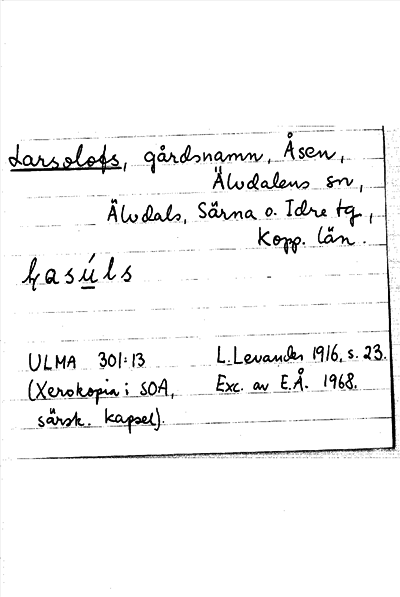 Larsolofs, gårdsnamn, Åsen,
Älvdalens sn,
Älvdals, Särna o. Idre tg,
Kopp. län.
ULMA 301:13 L. Levander 1916, s. 23.
(Xerokopia i SOA, Exc. av E.Å. 1968.
särsk. kapsel).